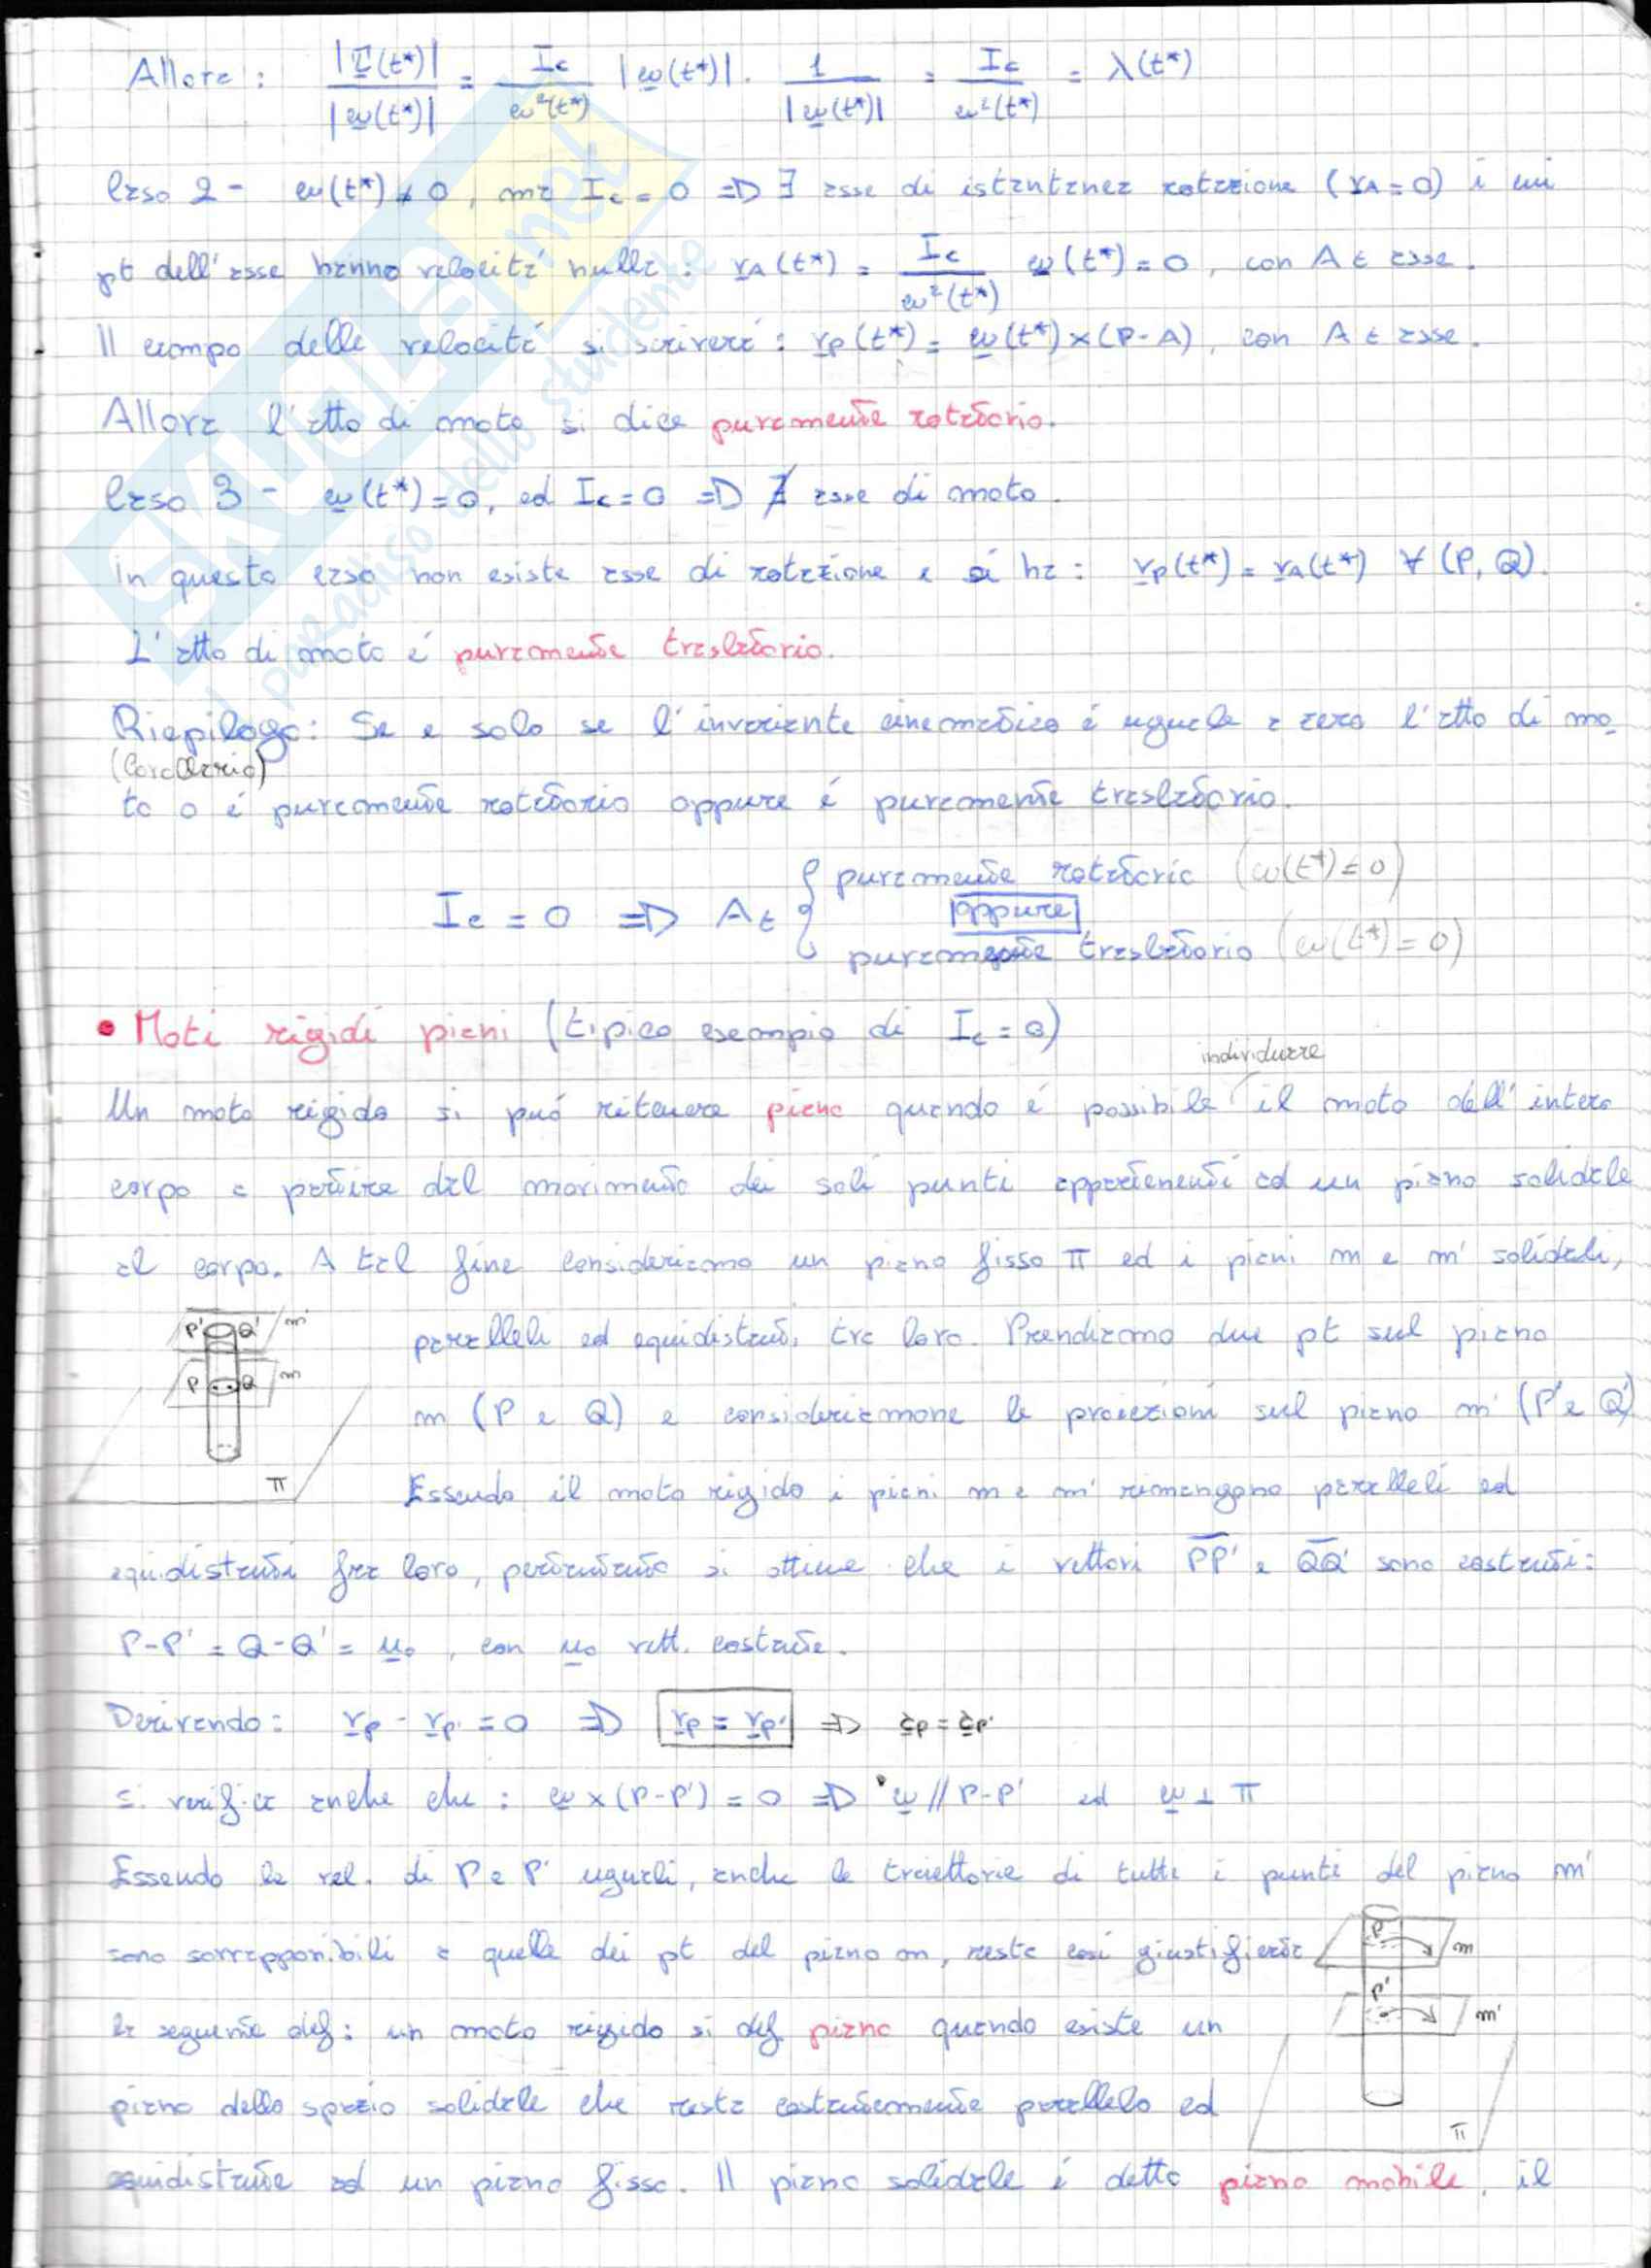 Allora: |τ(t*)| / |ω(t*)| = Ic / ω²(t*) |ω(t*)| · 1 / |ω(t*)| = Ic / ω²(t*) = λ(t*)
Caso 2 - ω(t*) ≠ 0, ma Ic = 0 => ∃ asse di istantanea rotazione (vA = 0) i cui
pt dell'asse hanno velocitá nulla: vA(t*) = Ic / ω²(t*) ω(t*) = 0, con A ∈ asse.
Il campo delle velocitá si scriverá: vp(t*) = ω(t*) × (P-A), con A ∈ asse.
Allora l'atto di moto si dice puramente rotatorio.
Caso 3 - ω(t*) = 0, ed Ic = 0 => ∄ asse di moto.
in questo caso non esiste asse di rotazione e si ha: vp(t*) = vA(t*) ∀ (P, Q).
L'atto di moto é puramente traslatorio.
Riepilogo: Se e solo se l'invariante cinematico é uguale a zero l'atto di mo-
(Corollario)
to o é puramente rotatorio oppure é puramente traslatorio.
puramente rotatorio (ω(t*) ≠ 0)
Ic = 0 => At { oppure
puramente traslatorio (ω(t*) = 0)
• Moti rigidi piani (tipico esempio di Ic = 0)
individuare
Un moto rigido si puó ritenere piano quando é possibile il moto dell'intero
corpo a partire dal movimento dei soli punti appartenenti ad un piano solidale
al corpo. A tal fine consideriamo un piano fisso π ed i piani m e m' solidali,
P' Q' m'
P Q m
π
paralleli ed equidistanti tra loro. Prendiamo due pt sul piano
m (P e Q) e consideriamone le proiezioni sul piano m' (P' e Q')
Essendo il moto rigido i piani m e m' rimangono paralleli ed
equidistanti fra loro, pertanto si ottiene che i vettori PP' e QQ' sono costanti:
P-P' = Q-Q' = u₀, con u₀ vett. costante.
Derivando: vp - vp' = 0 => vp = vp' => ap = ap'
si verifica anche che: ω × (P-P') = 0 => ω // P-P' ed ω ⊥ π
Essendo le vel. di P e P' uguali, anche le traiettorie di tutti i punti del piano m'
sono sovrapponibili a quelle dei pt del piano m, resta cosí giustificata
P m
P' m'
π
la seguente def: un moto rigido si def piano quando esiste un
piano dello spazio solidale che resta costantemente parallelo ed
equidistante ad un piano fisso. Il piano solidale é detto piano mobile, il
SKUOLA.net
il paradiso dello studente